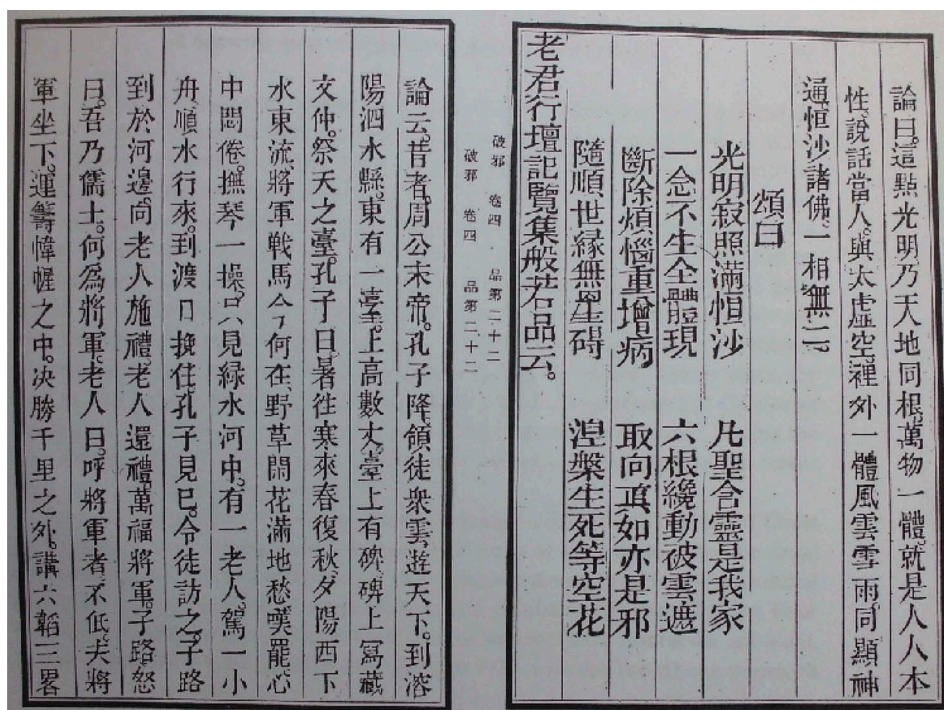 論曰。這點光明乃天地同根。萬物一體。就是人人本
性。說話當人。與太虛空。裡外一體。風雲雪雨。同顯神
通。恒沙諸佛。一相無二。
頌曰
光明寂照滿恒沙　凡聖含靈是我家
一念不生全體現　六根纔動破雲遮
斷除煩惱重增病　取向眞如亦是邪
隨順世緣無罣碍　湼槃生死等空花
老君行壇記覽集般若品云。
破邪　卷四・品第二十二
破邪　卷四　品第二十二
論云。昔者。周公末帝。孔子降。領徒衆雲遊天下。到濬
陽泗水縣。東有一臺。上高數丈。臺上有碑。碑上寫藏
文仲。祭天之臺。孔子曰。暑往寒來春復秋。夕陽西下
水東流。將軍戰馬今何在。野草閑花滿地愁。嘆罷。心
中悶倦。撫琴一操。只見緑水河中。有一老人。駕一小
舟。順水行來。到渡口挽住。孔子見已。令徒訪之。子路
到於河邊。向老人施禮。老人還禮。萬福將軍。子路怒
曰。吾乃儒士。何爲將軍。老人曰。呼將軍者。不低。夫將
軍坐下。運籌幃幄之中。决勝千里之外。講六韜三畧